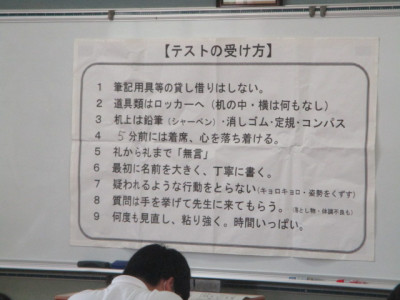 【テストの受け方】
1 筆記用具等の貸し借りはしない。
2 道具類はロッカーへ(机の中・横は何もなし)
3 机上は鉛筆(シャーペン)・消しゴム・定規・コンパス
4 5分前には着席、心を落ち着ける。
5 礼から礼まで「無言」
6 最初に名前を大きく、丁寧に書く。
7 疑われるような行動をとらない(キョロキョロ・姿勢をくずす)
8 質問は手を挙げて先生に来てもらう。(落とし物・体調不良も)
9 何度も見直し、粘り強く。時間いっぱい。